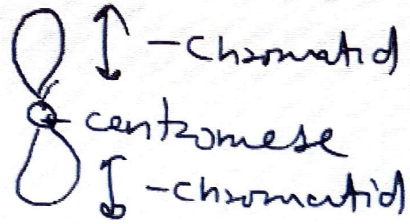 -Chromatid
centromere
-Chromatid